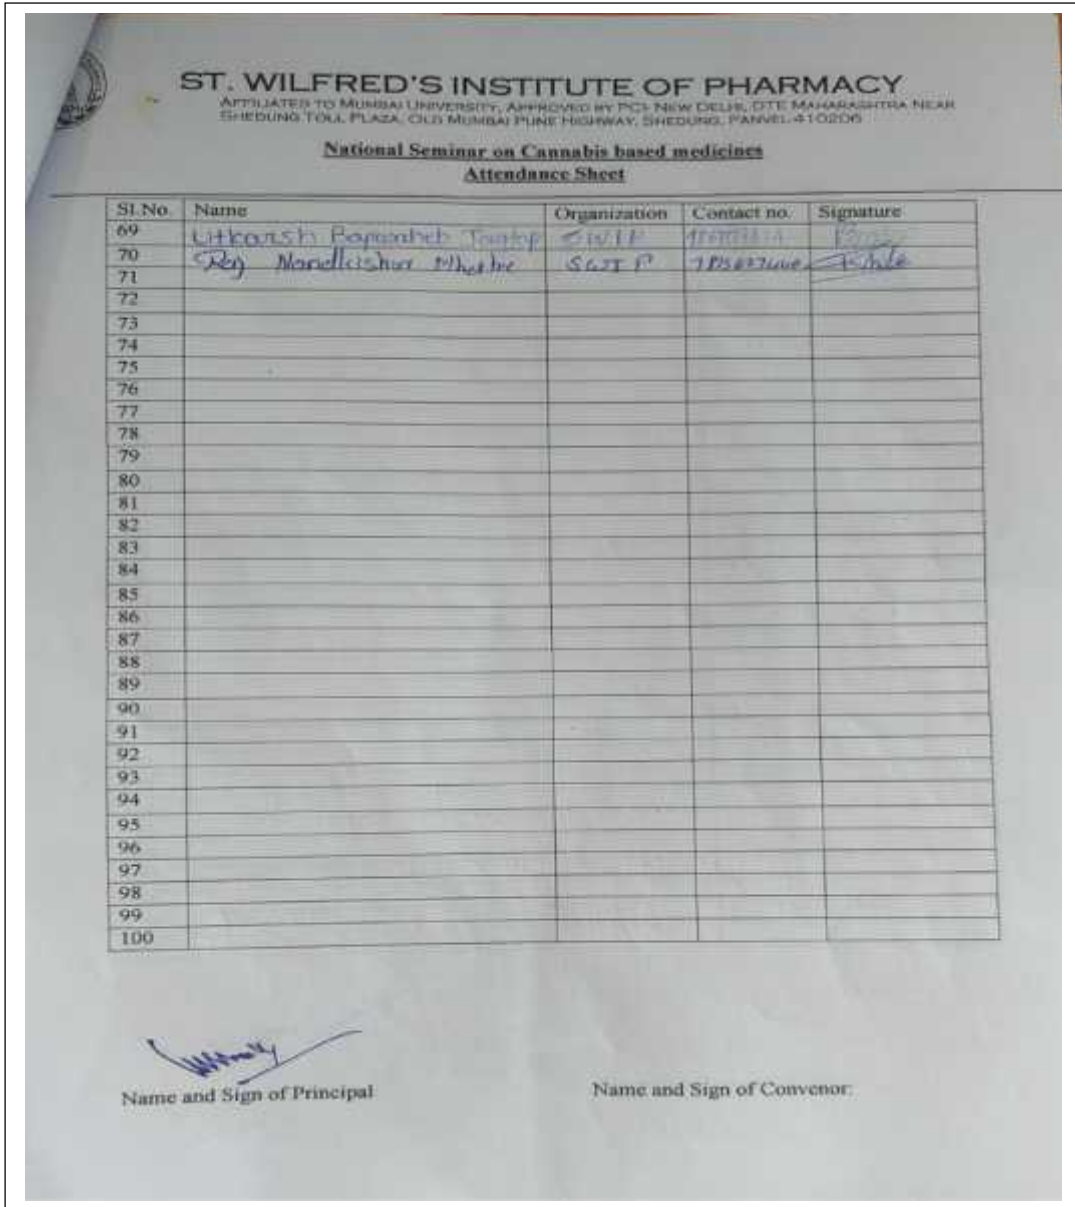 ST. WILFRED'S INSTITUTE OF PHARMACY
AFFILIATED TO MUMBAI UNIVERSITY, APPROVED BY PCI- NEW DELHI, DTE MAHARASHTRA NEAR
SHEDUNG TOLL PLAZA, OLD MUMBAI PUNE HIGHWAY, SHEDUNG, PANVEL-410206
National Seminar on Cannabis based medicines
Attendance Sheet
Sl.No. Name Organization Contact no. Signature
69 Utkarsh SWIP
70 Nandkishor Mhatre SWIP
71
72
73
74
75
76
77
78
79
80
81
82
83
84
85
86
87
88
89
90
91
92
93
94
95
96
97
98
99
100
Name and Sign of Principal Name and Sign of Convenor: